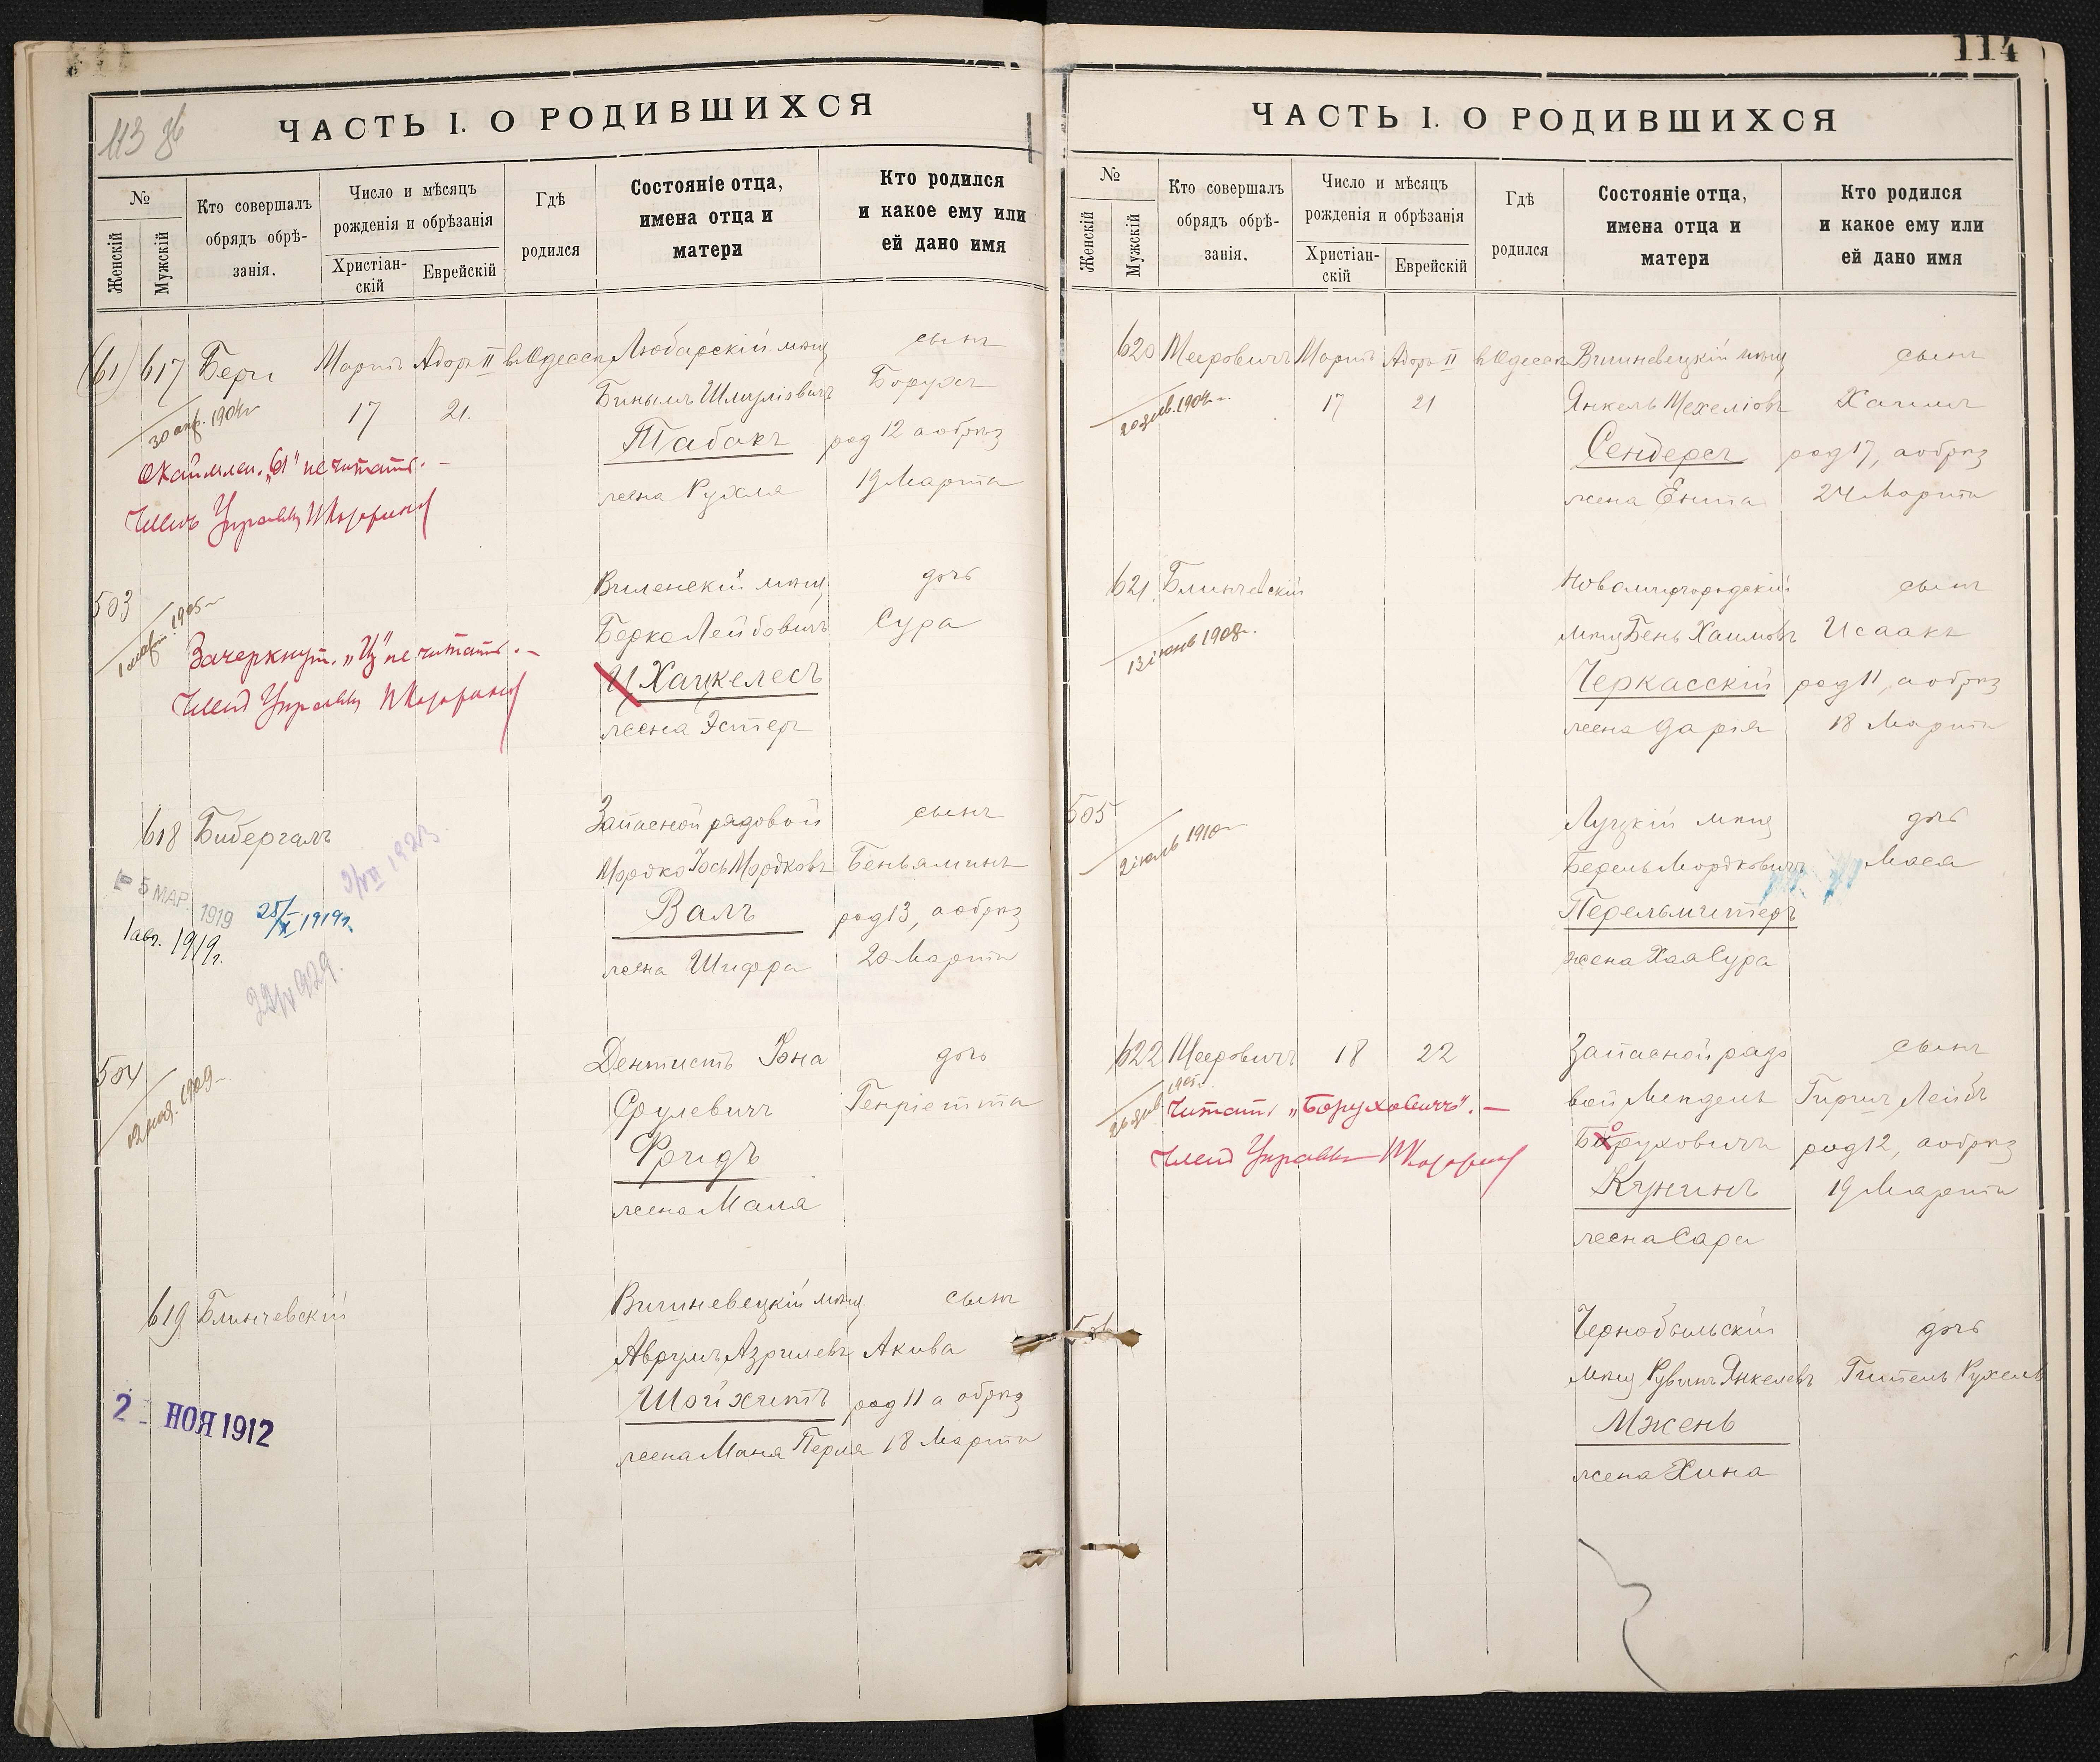 113 об
ЧАСТЬ I. О РОДИВШИХСЯ
№
Женскій
Мужскій
Кто совершалъ
обрядъ обрѣ-
занія.
Число и мѣсяцъ
рожденія и обрѣзанія
Христіан-
скій
Еврейскій
Гдѣ
родился
Состояніе отца,
имена отца и
матери
Кто родился
и какое ему или
ей дано имя
(61) 617 Бери Мартъ Адоръ II въ Одессѣ Любарскій мѣщ сынъ
17 21. Бинымъ Шмулiовичъ Борухъ
30 апр. 1904 г
Табакъ род 12 а обрѣз
жена Рухля 19 Марта
Окаймлен. „61" не читать. —
Членъ Управы
503 Виленскій мѣщ дочь
1905 г
Берко Лейбовичъ Сура
Зачеркнут. „Ц" не читать. —
Ц Хацкелесъ
Членъ Управы
жена Эстеръ
618 Бибергалъ Запасной рядовой сынъ
Мордко Іось Мордковъ Беньяминъ
5 МАР 1919
25/X 1919 г.
1 авг. 1919 г.
Валъ род 13, а обрѣз
жена Шифра 20 Марта
22/V 929.
504 Дентистъ Іона дочь
1909
Срулевичъ Генріетта
Фридъ
жена Маля
619 Блинчевскій Вишневецкій мѣщ сынъ
Аврумъ Азрилевъ Акива
Шойхетъ род 11 а обрѣз
жена Маня Перля 18 Марта
2 - НОЯ 1912
114
ЧАСТЬ I. О РОДИВШИХСЯ
№
Женскій
Мужскій
Кто совершалъ
обрядъ обрѣ-
занія.
Число и мѣсяцъ
рожденія и обрѣзанія
Христіан-
скій
Еврейскій
Гдѣ
родился
Состояніе отца,
имена отца и
матери
Кто родился
и какое ему или
ей дано имя
620 Мееровичъ Мартъ Адоръ II въ Одессѣ Вишневецкій мѣщ сынъ
17 21 Янкель Мехелiовъ Хаимъ
1904 г.
Сендеръ род 17, а обрѣз
жена Ента 24 Марта
621. Блинчевскій Новомиргородскій сынъ
13 іюнь 1908 г.
мѣщ Бень Хаимовъ Исаакъ
Черкасскій род 11, а обрѣз
жена Дарія 18 Марта
505 Луцкій мѣщ дочь
2 іюль 1910 г
Бедель Мордковичъ Мася
Перельмитеръ
жена Хая Сура
622 Мееровичъ 18 22 Запасной рядо сынъ
1905 г.
вой Мендель Гиршъ Лейбъ
Читать „Боруховичъ". —
Боруховичъ род 12, а обрѣз
Членъ Управы
Кунинъ 19 Марта
жена Сара
506 Чернобыльскій дочь
мѣщ Рувинъ Янкелевъ Гитель Рухель
Мжень
жена Хина